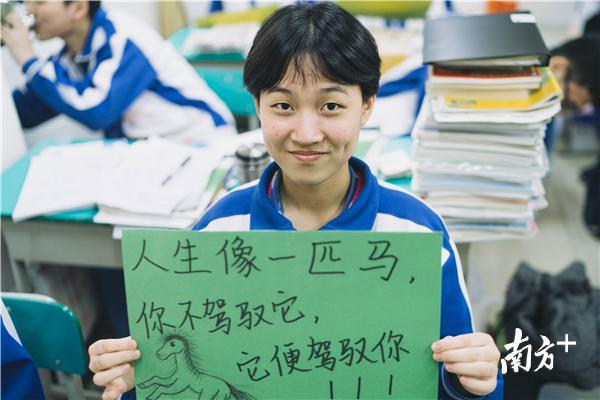 人生像一匹马，
你不驾驭它，
它便驾驭你
！！！
南方+